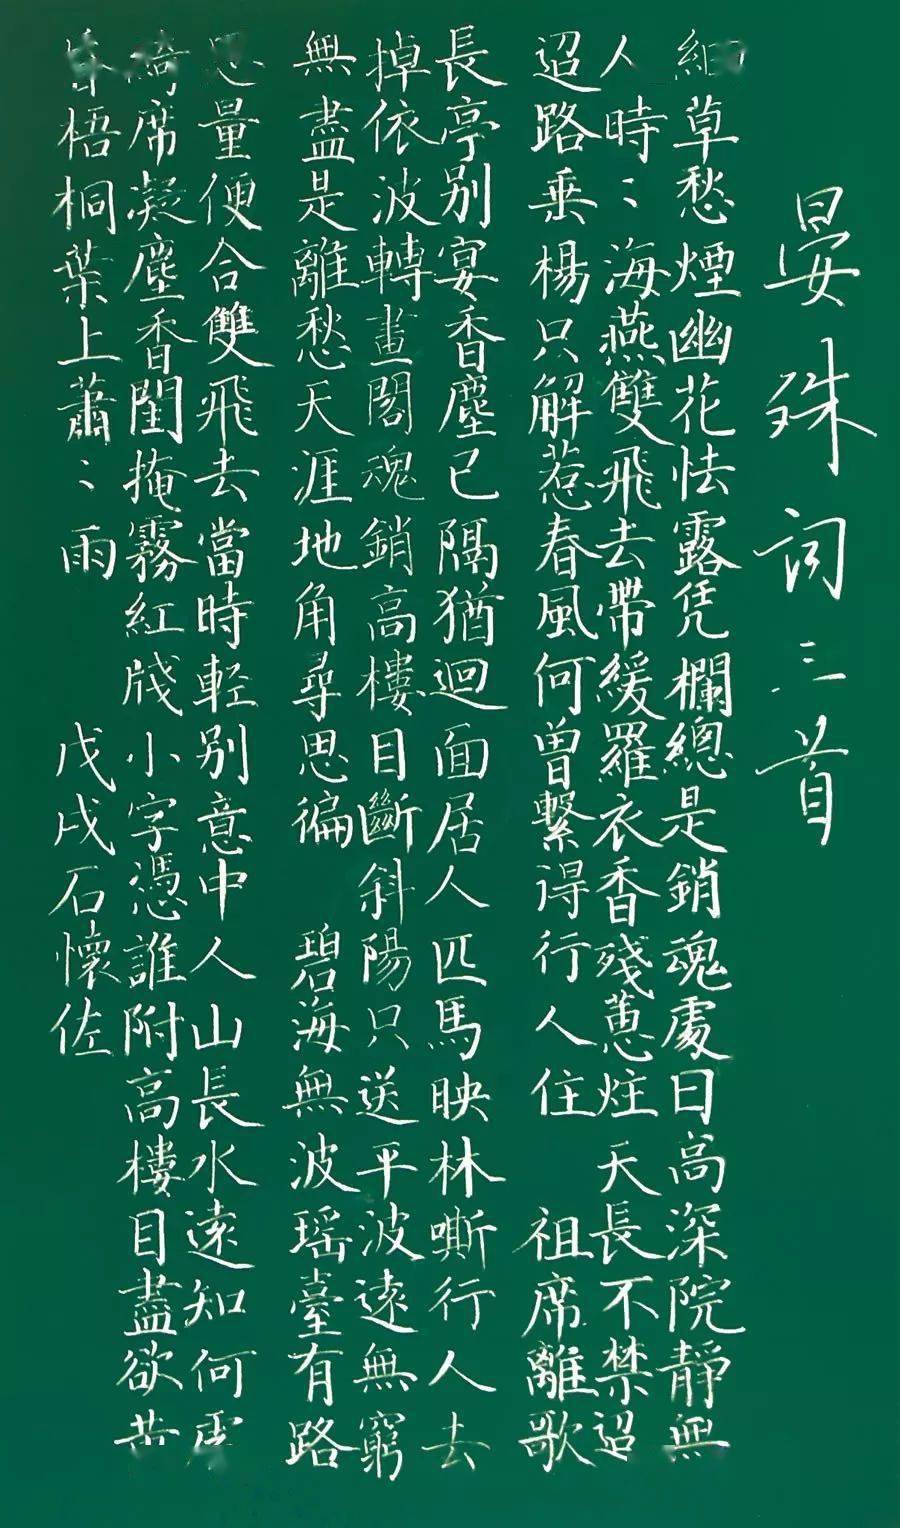 晏殊词三首
細草愁煙幽花怯露凭欄總是銷魂處日高深院靜無
人時〻海燕雙飛去帶緩羅衣香殘蕙炷天長不禁迢
迢路垂楊只解惹春風何曾繫得行人住 祖席離歌
長亭别宴香塵已隔猶迴面居人匹馬映林嘶行人去
掉依波轉畫閣魂銷高樓目斷斜陽只送平波遠無窮
無盡是離愁天涯地角尋思徧 碧海無波瑶臺有路
思量便合雙飛去當時軽别意中人山長水遠知何處
綺席凝塵香閨掩霧紅牋小字憑誰附高樓目盡欲黄
昏梧桐葉上蕭〻雨 戊戌石懷佐